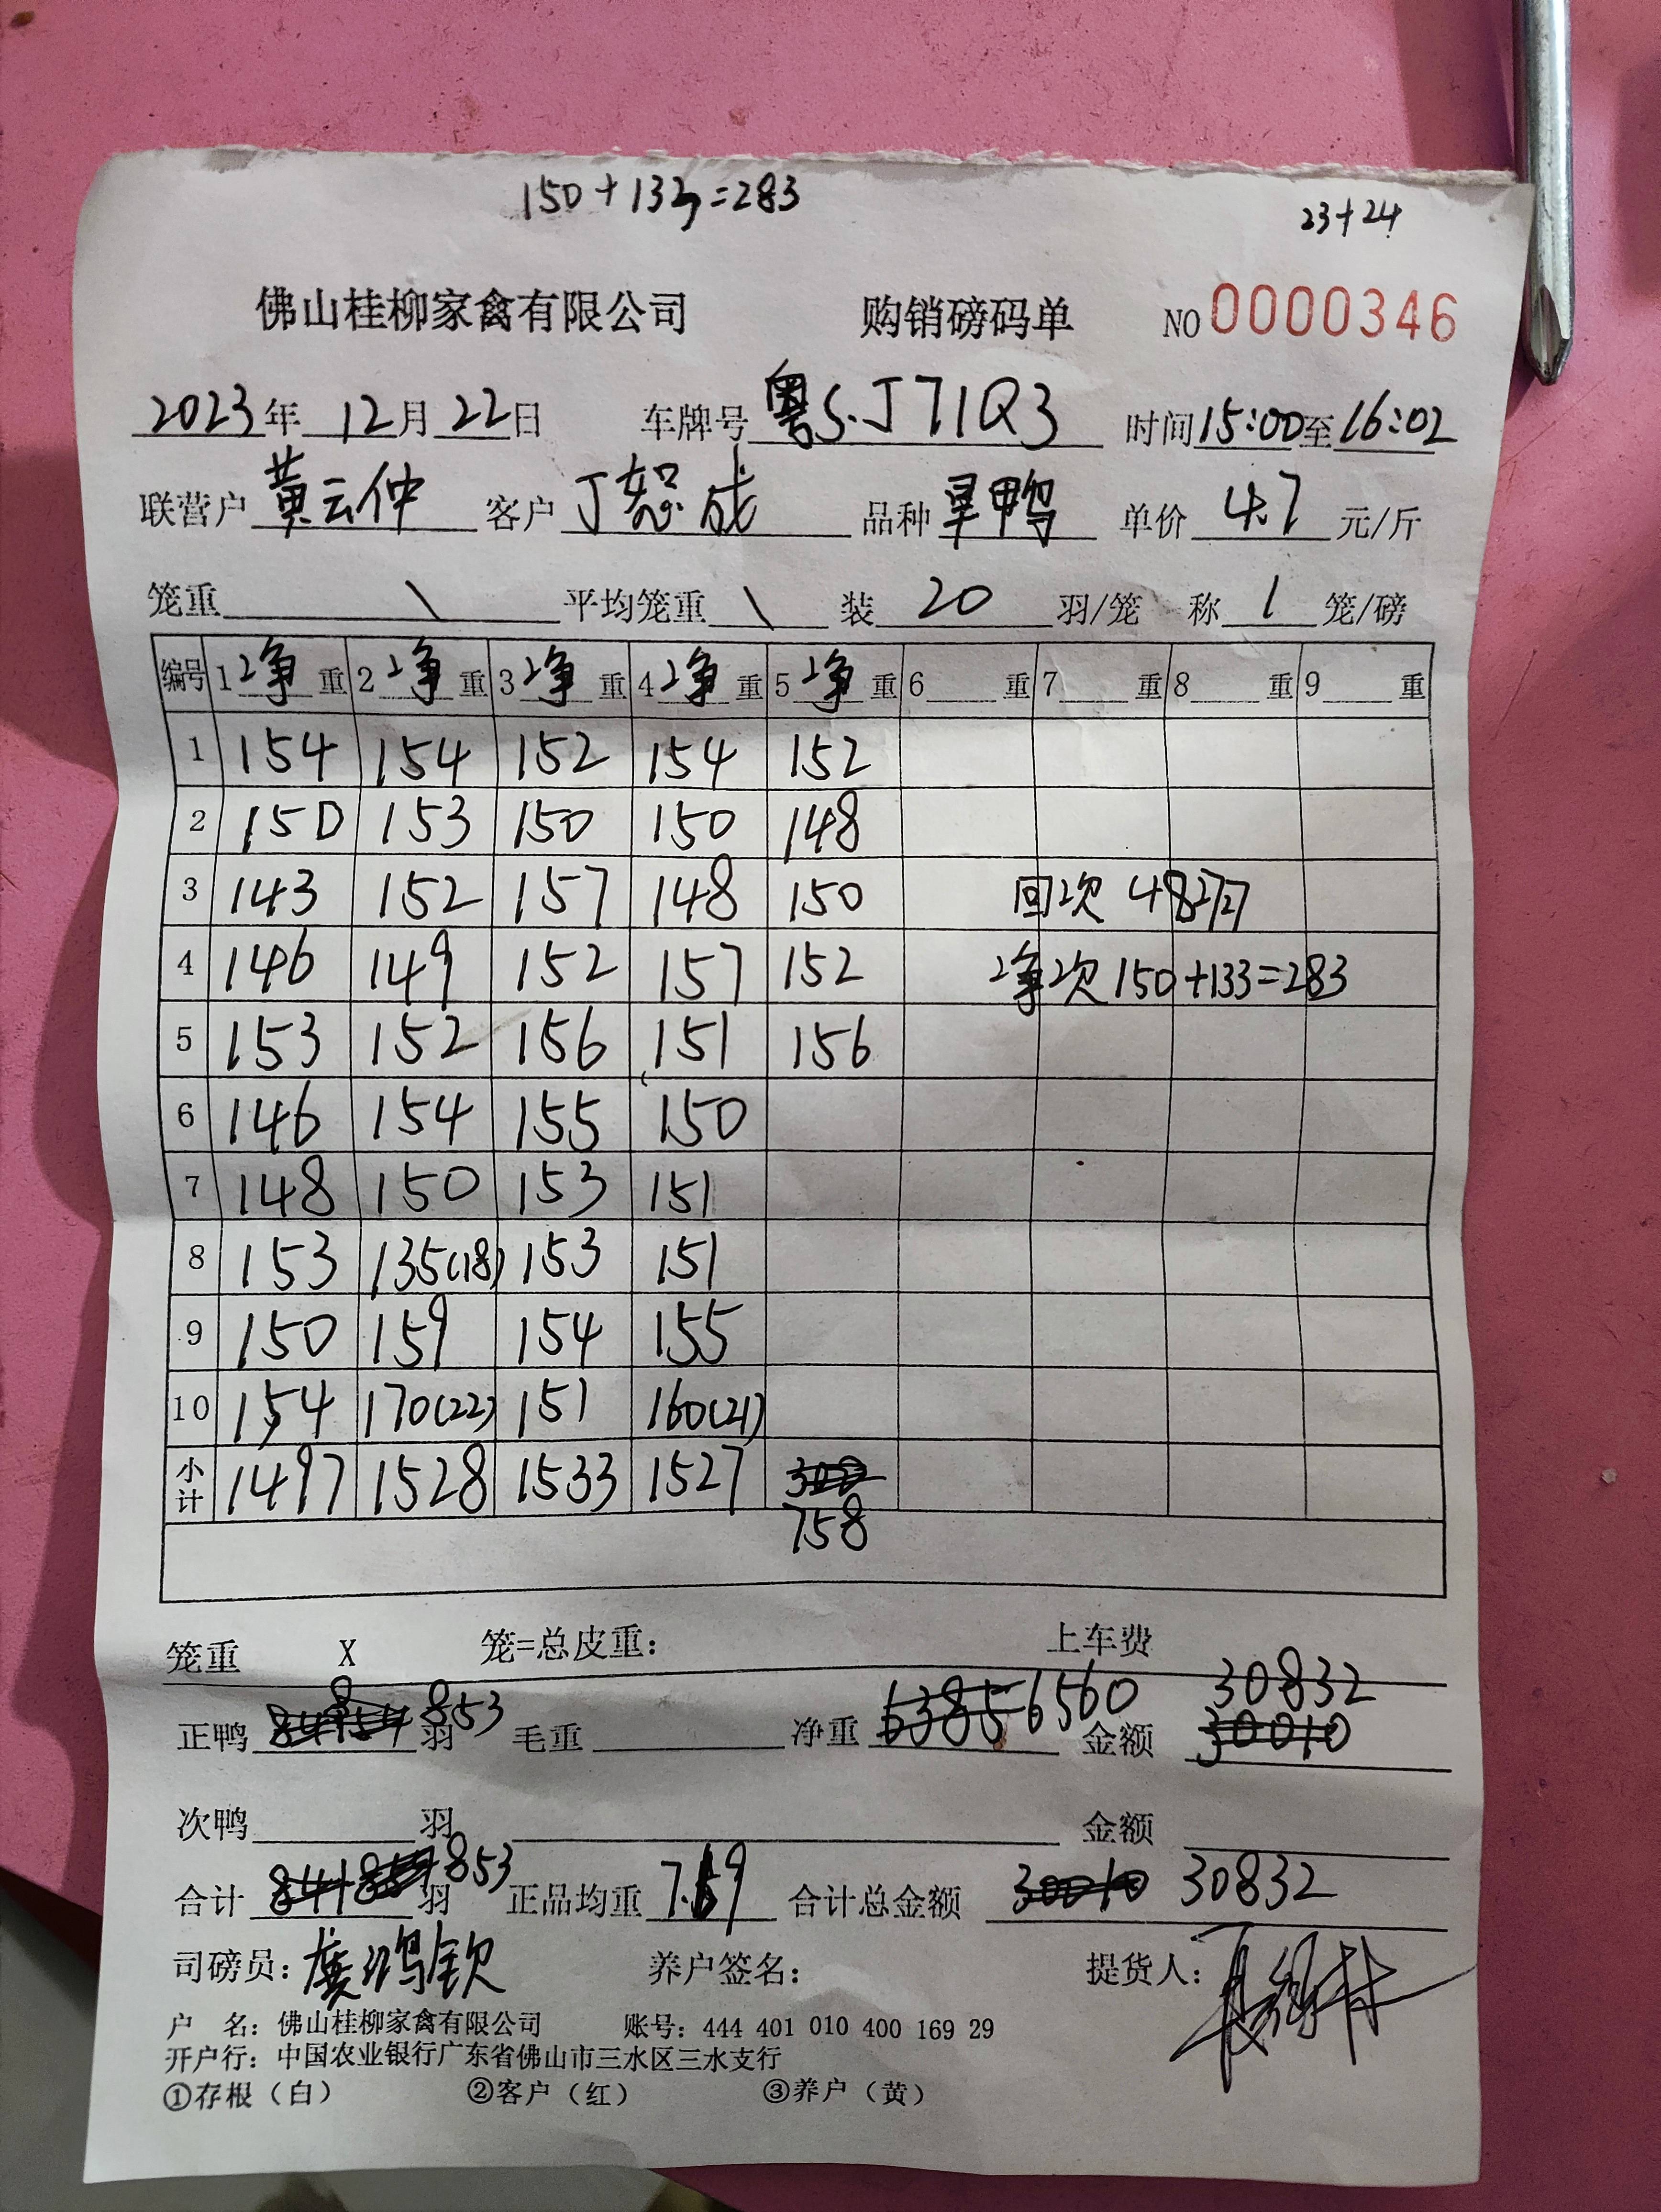 150+133=283 23+24
佛山桂柳家禽有限公司 购销磅码单 NO 0000346
2023年12月22日 车牌号 粤S.J71Q3 时间 15:00至16:02
联营户 黄云仲 客户 丁恕成 品种 旱鸭 单价 4.7 元/斤
笼重 \ 平均笼重 \ 装 20 羽/笼 称 1 笼/磅
编号 1净重 2净重 3净重 4净重 5净重 6 重 7 重 8 重 9 重
1 154 154 152 154 152
2 150 153 150 150 148
3 143 152 157 148 150 回次 48羽
4 146 149 152 157 152 净次 150+133=283
5 153 152 156 151 156
6 146 154 155 150
7 148 150 153 151
8 153 135(18) 153 151
9 150 159 154 155
10 154 170(22) 151 160(21)
小计 1497 1528 1533 1527
758
笼重 X 笼=总皮重: 上车费
正鸭 853 羽 毛重 净重 6385 6560 金额 30010 30832
次鸭 羽 金额
合计 853 羽 正品均重 7.69 合计总金额 30010 30832
司磅员: 养户签名: 提货人:
户 名: 佛山桂柳家禽有限公司 账号: 444 401 010 400 169 29
开户行: 中国农业银行广东省佛山市三水区三水支行
①存根（白） ②客户（红） ③养户（黄）